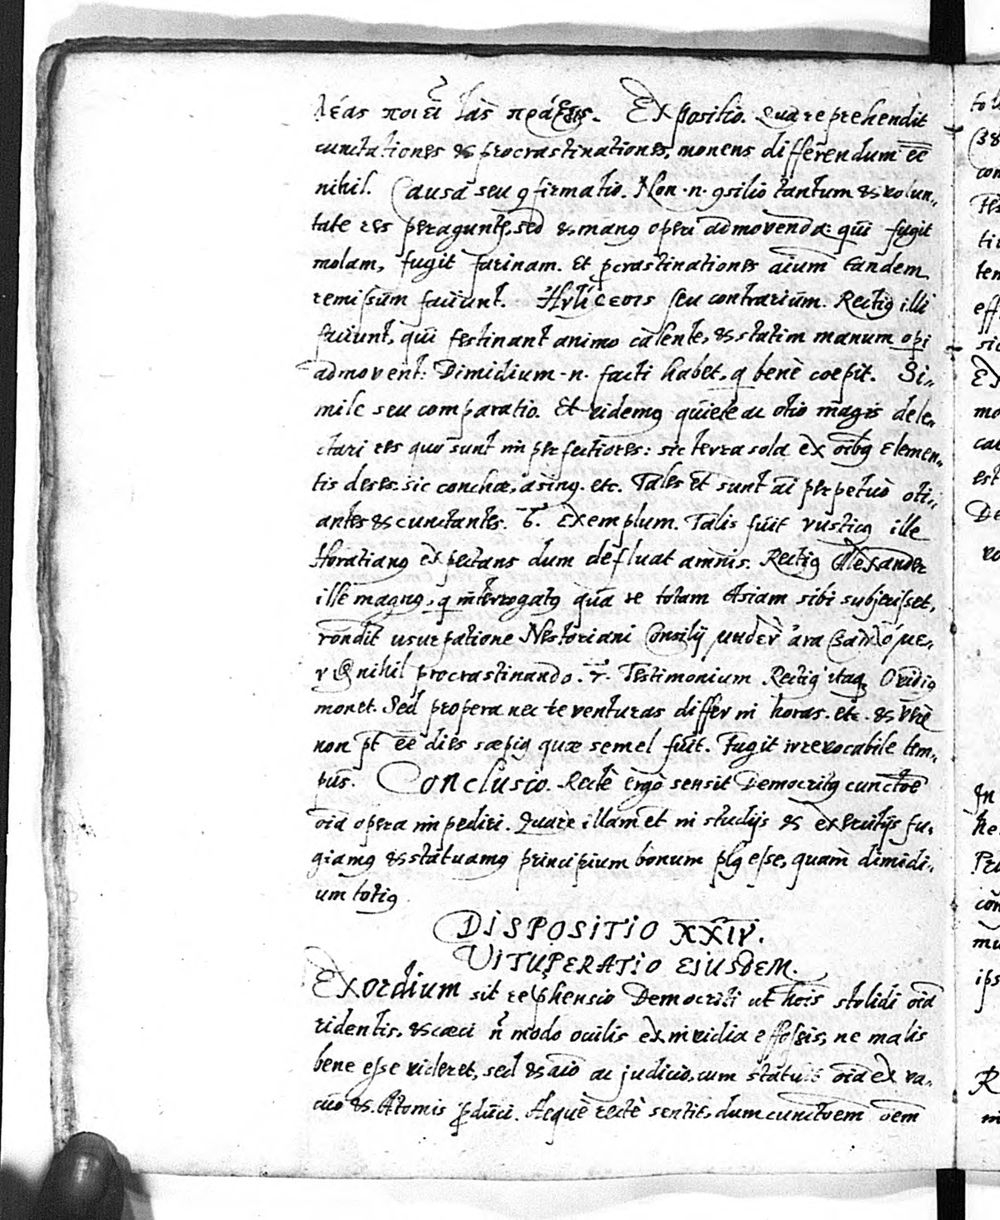 λέας ποιεῖ τὰς πράξεις. Expositio. Qua reprehendit
cunctationes & procrastinationes, monens differendum ēē
nihil. Causa seu ꝯfirmatio. Non .n. ꝯsilio tantum & volun-
tate res peragunt᷑, sed & manꝰ operi admovenda: qui fugit
molam, fugit farinam. Et ꝓcrastinationes aium̄ tandem
remissum faciunt. seu contrarium. Rectiꝰ illi
faciunt, qui festinant animo calente, & statim manum opi
admovent: Dimidium .n. facti habet, q bene coepit. Si-
mile seu comparatio. Et videmꝰ quiete ac otio magis dele-
ctari res quo sunt imperfectiores: sic terra sola ex oībꝰ elemen-
tis deses. sic conchae, asinꝰ. etc. Tales et sunt perpetuo oti-
antes & cunctantes. 6. Exemplum. Talis fuit rusticꝰ ille
Horatianꝰ expectans dum defluat amnis. Rectiꝰ Alexander
ille magnꝰ, q īterrogatꝰ qua re totam Asiam sibi subjecisset,
rōndit usurpatione Nestoriani Consilij, μηδὲν ἀναβαλλόμε-
νος nihil procrastinando. 7. Testimonium Rectiꝰ itaq Ovidiꝰ
monet. Sed propera nec te venturas differ in horas. etc. & vere
non pt ēē dies saepiꝰ quae semel fuit. Fugit irrevocabile tem-
pus. Conclusio. Recte ergo sensit Democritꝰ cunctōē
oīa opera impediri. Quare illam et in studijs & exercitijs fu-
giamꝰ & statuamꝰ principium bonum plꝰ esse, quam dimidi-
um totiꝰ.
DISPOSITIO XXIV.
VITUPERATIO EJUSDEM.
Exordium sit reprehensio Democriti ut hoīs stolidi oīa
ridentis, & caeci n̄ modo oculis ex invidia effossis, ne malis
bene esse videret, sed & aīo ac judicio, cum statuit oīa ex va-
cuo & Atomis ꝓduci. Aeque recte sentit, dum cunctōem oem